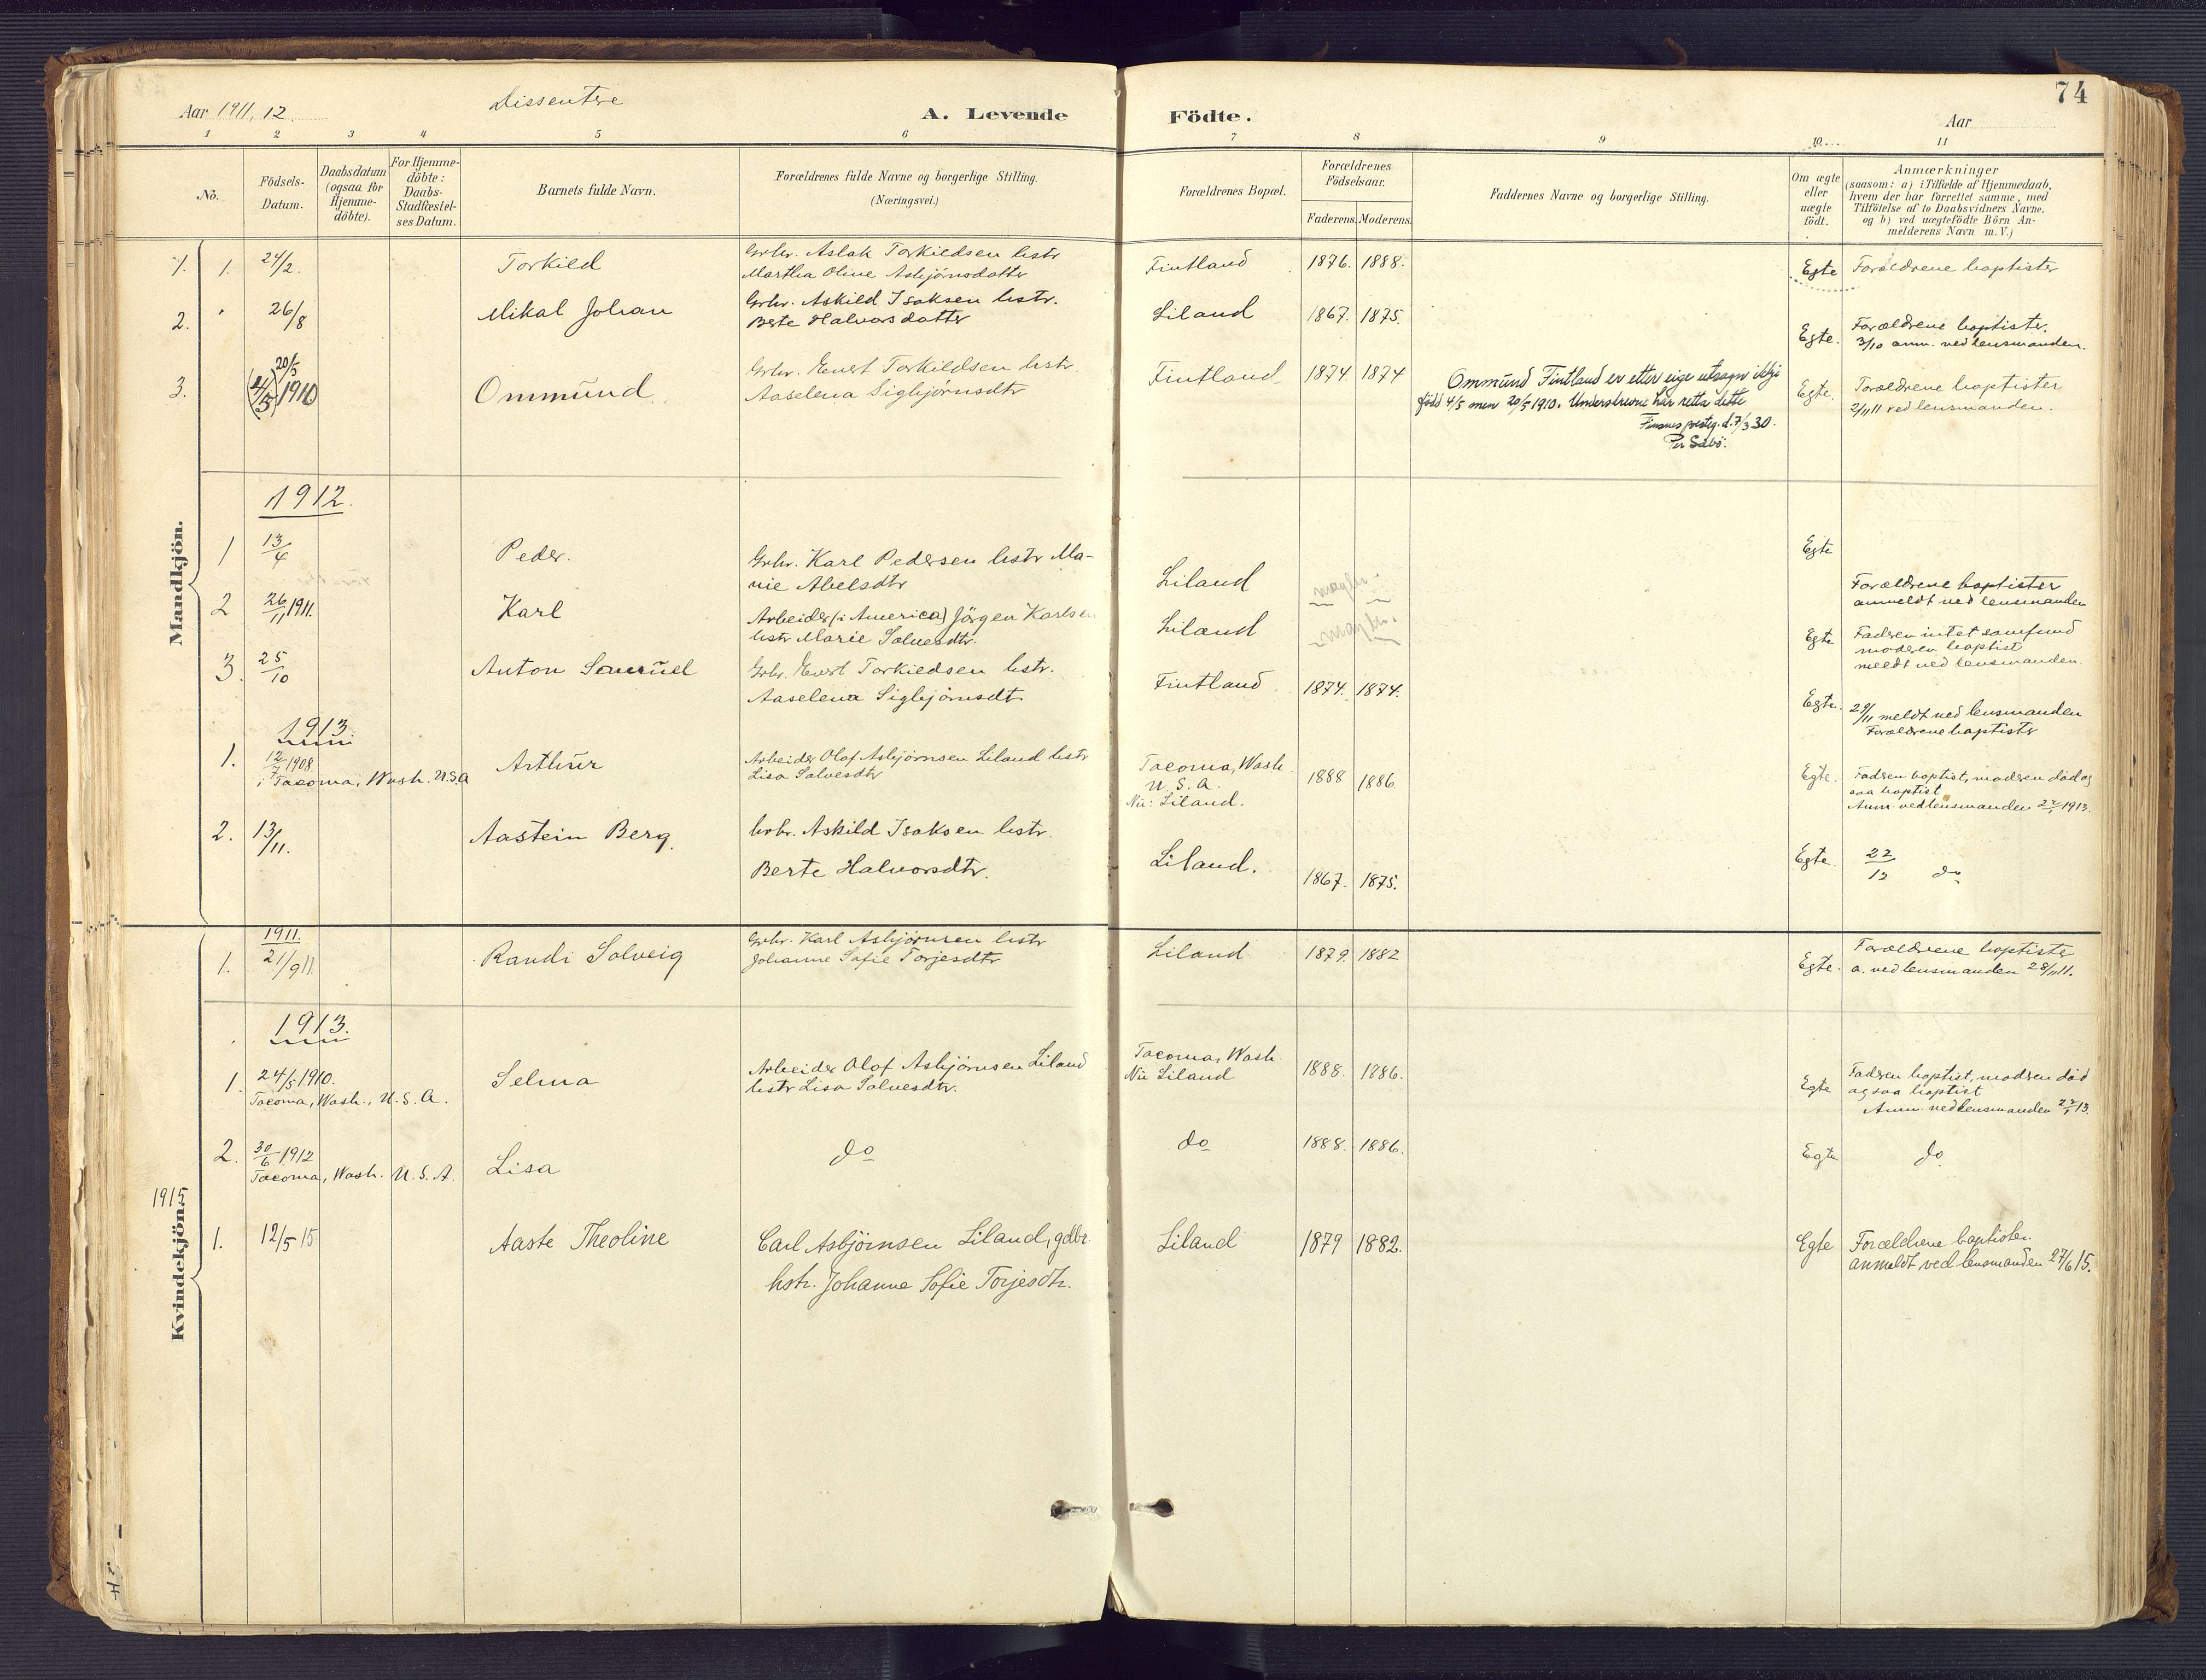 74
Aar 1911, 12
Dissentere
A. Levende Födte.
Aar
1 2 3 4 5 6 7 8 9 10 11
No.
Födsels-
Datum.
Daabsdatum
(ogsaa for
Hjemme-
döbte).
For Hjemme-
döbte:
Daabs-
Stadfæstel-
ses Datum.
Barnets fulde Navn.
Forældrenes fulde Navne og borgerlige Stilling.
(Næringsvei.)
Forældrenes Bopæl.
Forældrenes
Födselsaar.
Faderens. Moderens.
Faddernes Navne og borgerlige Stilling.
Om ægte
eller
uægte
födt.
Anmærkninger
(saasom: a) i Tilfælde af Hjemmedaab,
hvem der har forrettet samme, med
Tilföielse af to Daabsvidners Navne.
og b) ved uægtefödte Börn An-
melderens Navn m. V.)
Mandkjön.
1. 1. 24/2. Torkild
Grbr. Aslak Torkildsen hstr
Martha Oline Asbjönsdatter
Fintland 1876. 1888. Egte Forældrene baptister
2. 26/8 Mikal Johan
Grbr. Askild Isaksen hstr.
Berte Halvorsdatter
Liland 1867. 1875. Egte.
Forældrene baptister.
3/10 anm. ved lensmanden.
3. 20/5
(4/5) 1910 Ommund
Grbr. Evert Torkildsen hstr.
Aaselena Sigbjørnsdtr
Fintland 1874. 1874
Ommund Fintland er etter eige utsagn ikkji
född 4/5 men 20/5 1910. Underskrevne har retta dette
prestig. d. 7/3 30.
Per Sæbö.
Egte.
Forældrene baptister
2/11 11 ved lensmanden.
1912.
1 13/4 Peder.
Grbr. Karl Pedersen hstr Ma-
rie Abelsdtr
Liland Egte
Forældrene baptister
anmeldt ved lensmanden
2 26/11 1911. Karl
Arbeider (i America) Jörgen Karlsen
hstr Marie Salvesdtr.
Liland Egte
Fadren intet samfund
modren baptist
meldt ved lensmanden.
3. 25/10 Anton Samuel
Grbr. Evert Torkildsen hstr.
Aaselena Sigbjörnsdt
Fintland 1874. 1874. Egte.
29/11 meldt ved lensmanden
Forældrene baptister
1913.
1. 12/7 1908.
i Tacoma, Wash. U.S.A
Arthur
Arbeider Olaf Asbjørnsen Liland hstr
Lisa Salvesdtr
Tacoma, Wash.
U. S. A.
Nu: Liland.
1888 1886. Egte.
Fadren baptist, modren död og
saa baptist
Anm. ved lensmanden 1913.
2. 13/11. Aastein Berg.
Grbr. Askild Isaksen hstr.
Berte Halvorsdtr.
Liland. 1867. 1875. Egte. 22/12 do
Kvindekjön.
1911.
1. 21/9 11 Randi Solveig
Grbr. Karl Asbjørnsen hstr
Johanne Sofie Torjesdtr
Liland 1879. 1882 Egte.
Forældrene baptister
a. ved lensmanden 28/11 11.
1913.
1. 24/5 1910.
Tacoma, Wash., U. S. A.
Selma
Arbeider Olaf Asbjörnsen Liland
hstr Lisa Salvesdtr.
Tacoma, Wash.
Nu Liland
1888. 1886. Egte
Fadren baptist, modren död
ogsaa baptist
Anm. ved lensmanden 13.
2. 30/6 1912
Tacoma, Wash. U. S. A.
Lisa do do 1888. 1886. Egte do
1915
1. 12/5 15 Aaste Theoline
Carl Asbjörnsen Liland, gdbr.
hstr. Johanne Sofie Torjesdtr.
Liland 1879 1882. Egte
Forældrene baptister.
anmeldt ved lensmanden 27/6 15.